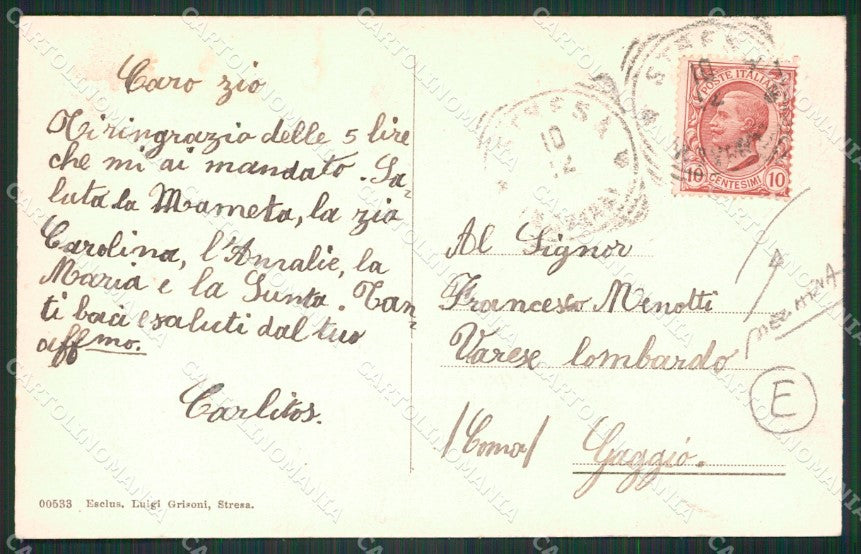 Caro zio
Ti ringrazio delle 5 lire
che mi ai mandato. Sa-
luta la Mameta, la zia
Carolina, l'Amalie, la
Maria e la Santa. Tan-
ti baci e saluti dal tuo
affmo.
Carlitos.
00533 Esclus. Luigi Grisoni, Stresa.
STRESA
10
12
POSTE ITALIANE
10 CENTESIMI 10
Al Signor
Francesco Menotti
Varese lombardo
/Como/ Gaggio.
MEZZINA
E
CARTOLINOMANIA